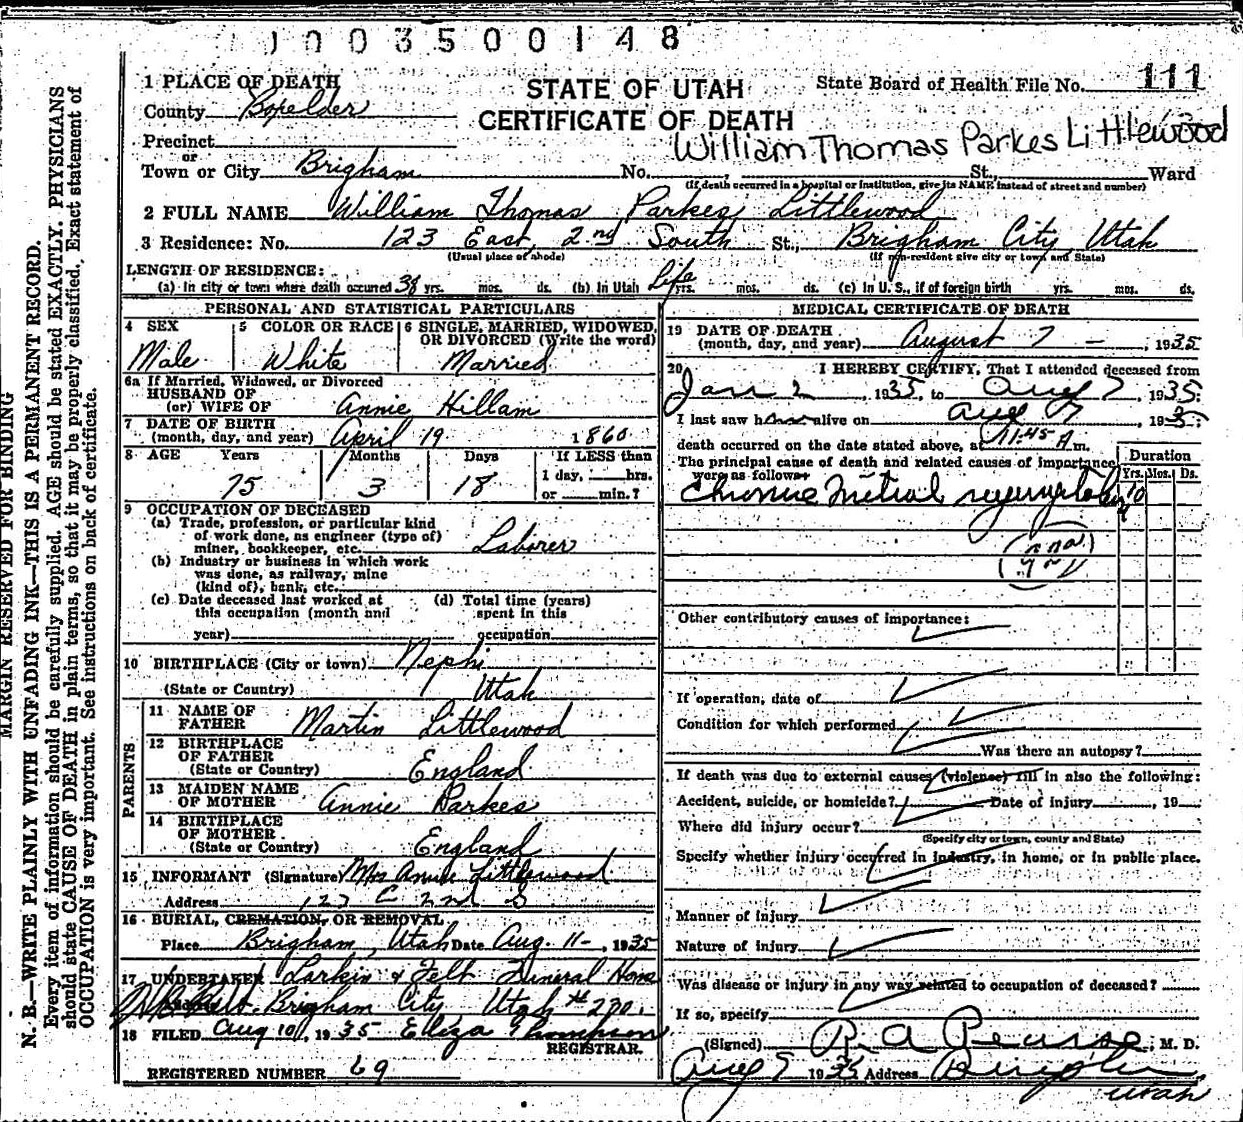 1003500148
1 PLACE OF DEATH
STATE OF UTAH
State Board of Health File No. 111
County Boxelder
CERTIFICATE OF DEATH
Precinct
William Thomas Parkes Littlewood
or
Town or City Brigham No. St., Ward
(If death occurred in a hospital or institution, give its NAME instead of street and number)
2 FULL NAME William Thomas Parkes Littlewood
3 Residence: No. 123 East, 2nd South St., Brigham City Utah
(Usual place of abode) (If non-resident give city or town and State)
LENGTH OF RESIDENCE:
(a) In city or town where death occurred 38 yrs. mos. ds. (b) In Utah Life yrs. mos. ds. (c) In U. S., if of foreign birth yrs. mos. ds.
PERSONAL AND STATISTICAL PARTICULARS
4 SEX 5 COLOR OR RACE 6 SINGLE, MARRIED, WIDOWED,
OR DIVORCED (Write the word)
Male White Married
6a If Married, Widowed, or Divorced
HUSBAND OF
(or) WIFE OF Annie Hillam
7 DATE OF BIRTH
(month, day, and year) April 19 1860
8 AGE Years Months Days If LESS than
1 day, hrs.
75 3 18 or min.?
9 OCCUPATION OF DECEASED
(a) Trade, profession, or particular kind
of work done, as engineer (type of)
miner, bookkeeper, etc. Laborer
(b) Industry or business in which work
was done, as railway, mine
(kind of), bank, etc.
(c) Date deceased last worked at (d) Total time (years)
this occupation (month and spent in this
year) occupation
10 BIRTHPLACE (City or town) Nephi
(State or Country) Utah
PARENTS
11 NAME OF
FATHER Martin Littlewood
12 BIRTHPLACE
OF FATHER
(State or Country) England
13 MAIDEN NAME
OF MOTHER Annie Parkes
14 BIRTHPLACE
OF MOTHER
(State or Country) England
15 INFORMANT (Signature) Mrs Annie Littlewood
Address 123 E 2nd S
16 BURIAL, CREMATION, OR REMOVAL
Place Brigham, Utah Date Aug. 11-, 1935
17 UNDERTAKER Larkin & Felt Funeral Home
Brigham City Utah #270.
18 FILED Aug 10, 1935 Eliza Thompson
REGISTRAR.
REGISTERED NUMBER 69
MEDICAL CERTIFICATE OF DEATH
19 DATE OF DEATH
(month, day, and year) August 7 -, 1935
20 I HEREBY CERTIFY, That I attended deceased from
Jan 2, 1935, to Aug 7, 1935;
I last saw him alive on Aug 7, 1935;
death occurred on the date stated above, at 11:45 A m.
The principal cause of death and related causes of importance
were as follows: Duration
Yrs. Mos. Ds.
Chronic Mitral regurgitation 10
Other contributory causes of importance:
If operation, date of
Condition for which performed
Was there an autopsy?
If death was due to external causes (violence) fill in also the following:
Accident, suicide, or homicide? Date of injury, 19
Where did injury occur?
(Specify city or town, county and State)
Specify whether injury occurred in industry, in home, or in public place.
Manner of injury
Nature of injury
Was disease or injury in any way related to occupation of deceased?
If so, specify
(Signed) R A Pearse, M. D.
Aug 1935 Address Brigham
Utah
MARGIN RESERVED FOR BINDING
N. B.—WRITE PLAINLY WITH UNFADING INK—THIS IS A PERMANENT RECORD.
Every item of information should be carefully supplied. AGE should be stated EXACTLY. PHYSICIANS
should state CAUSE OF DEATH in plain terms, so that it may be properly classified. Exact statement of
OCCUPATION is very important. See instructions on back of certificate.